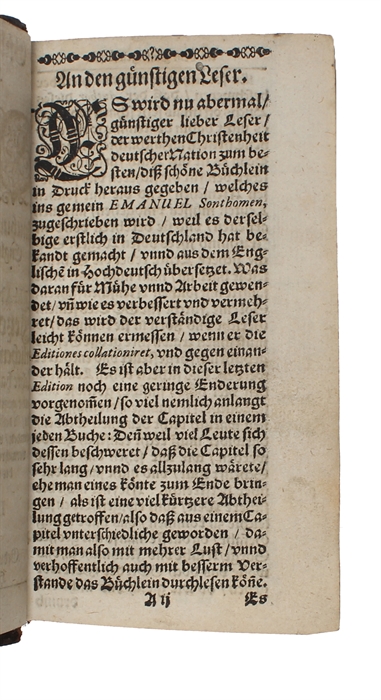 An den günstigen Leser.
ES wird nu abermal/
günstiger lieber Leser/
der werthen Christenheit
deutscher Nation zum be-
sten/diß schöne Büchlein
in Druck heraus gegeben/ welches
ins gemein EMANUEL Sonthomen,
zugeschrieben wird/ weil es dersel-
bige erstlich in Deutschland hat be-
kandt gemacht/ vnnd aus dem Eng-
lischē in Hochdeutsch übersetzet. Was
daran für Mühe vnnd Arbeit gewen-
det/ vñ wie es verbessert vnd vermeh-
ret/ das wird der verständige Leser
leicht können ermessen/ wenn er die
Editiones collationiret, vnd gegen einan-
der hält. Es ist aber in dieser letzten
Edition noch eine geringe Enderung
vorgenom̃en/ so viel nemlich anlangt
die Abtheilung der Capitel in einem
jeden Buche: Deñ weil viel Leute sich
dessen beschweret/ daß die Capitel so
sehr lang/ vnnd es allzulang wärete/
ehe man eines könte zum Ende brin-
gen/ als ist eine viel kürtzere Abthei-
lung getroffen/also daß aus einem Ca-
pitel vnterschiedliche geworden/ da-
mit man also mit mehrer Lust/ vnnd
verhoffentlich auch mit besserm Ver-
stande das Büchlein durchlesen köñe.
A ij Es